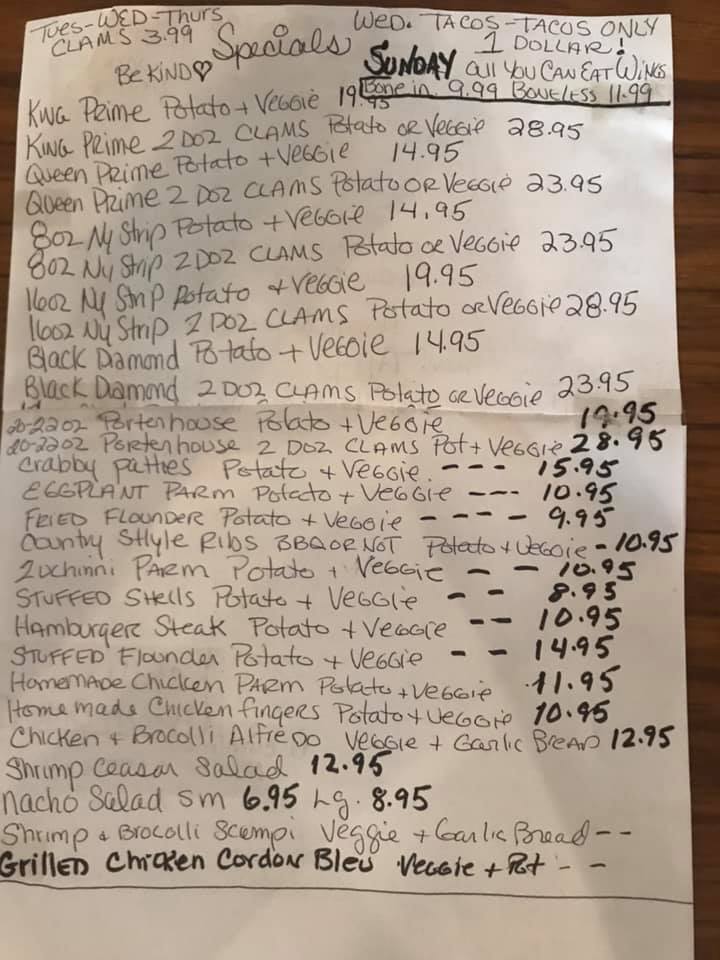 Tues-WED-Thurs
CLAMS 3.99
Specials
WED. TACOS-TACOS ONLY
1 DOLLAR!
BE KIND♡
SUNDAY all YOU CAN EAT WINGS
Bone in 9.99 BONELESS 11.99
King Prime Potato + Veggie 19.95
King Prime 2 DOZ CLAMS Potato OR Veggie 28.95
Queen Prime Potato + Veggie 14.95
Queen Prime 2 DOZ CLAMS Potato OR Veggie 23.95
8oz Ny Strip Potato + Veggie 14.95
8oz Ny Strip 2 DOZ CLAMS Potato or Veggie 23.95
16oz Ny Strip Potato + Veggie 19.95
16oz Ny Strip 2 DOZ CLAMS Potato or Veggie 28.95
Black Diamond Potato + Veggie 14.95
Black Diamond 2 DOZ CLAMS Potato or Veggie 23.95
20-22oz Porterhouse Potato + Veggie 19.95
20-22oz Porterhouse 2 DOZ CLAMS Pot + Veggie 28.95
Crabby patties Potato + Veggie --- 15.95
EGGPLANT PARM Potato + Veggie --- 10.95
FRIED FLOUNDER Potato + Veggie ---- 9.95
Country Sthyle Ribs BBQ OR NOT Potato + Veggie - 10.95
Zuchinni PARM Potato + Veggie -- 10.95
STUFFED Shells Potato + Veggie -- 8.95
Hamburger Steak Potato + Veggie -- 10.95
STUFFED Flounder Potato + Veggie -- 14.95
HOMEMADE Chicken PARM Potato + Veggie 11.95
Home made Chicken fingers Potato + Veggie 10.95
Chicken + Brocolli Alfredo Veggie + Garlic Bread 12.95
Shrimp Ceasar Salad 12.95
Nacho Salad sm 6.95 Lg. 8.95
Shrimp & Brocolli Scempi Veggie + Garlic Bread --
GrillED Chicken Cordon Bleu Veggie + Pot --